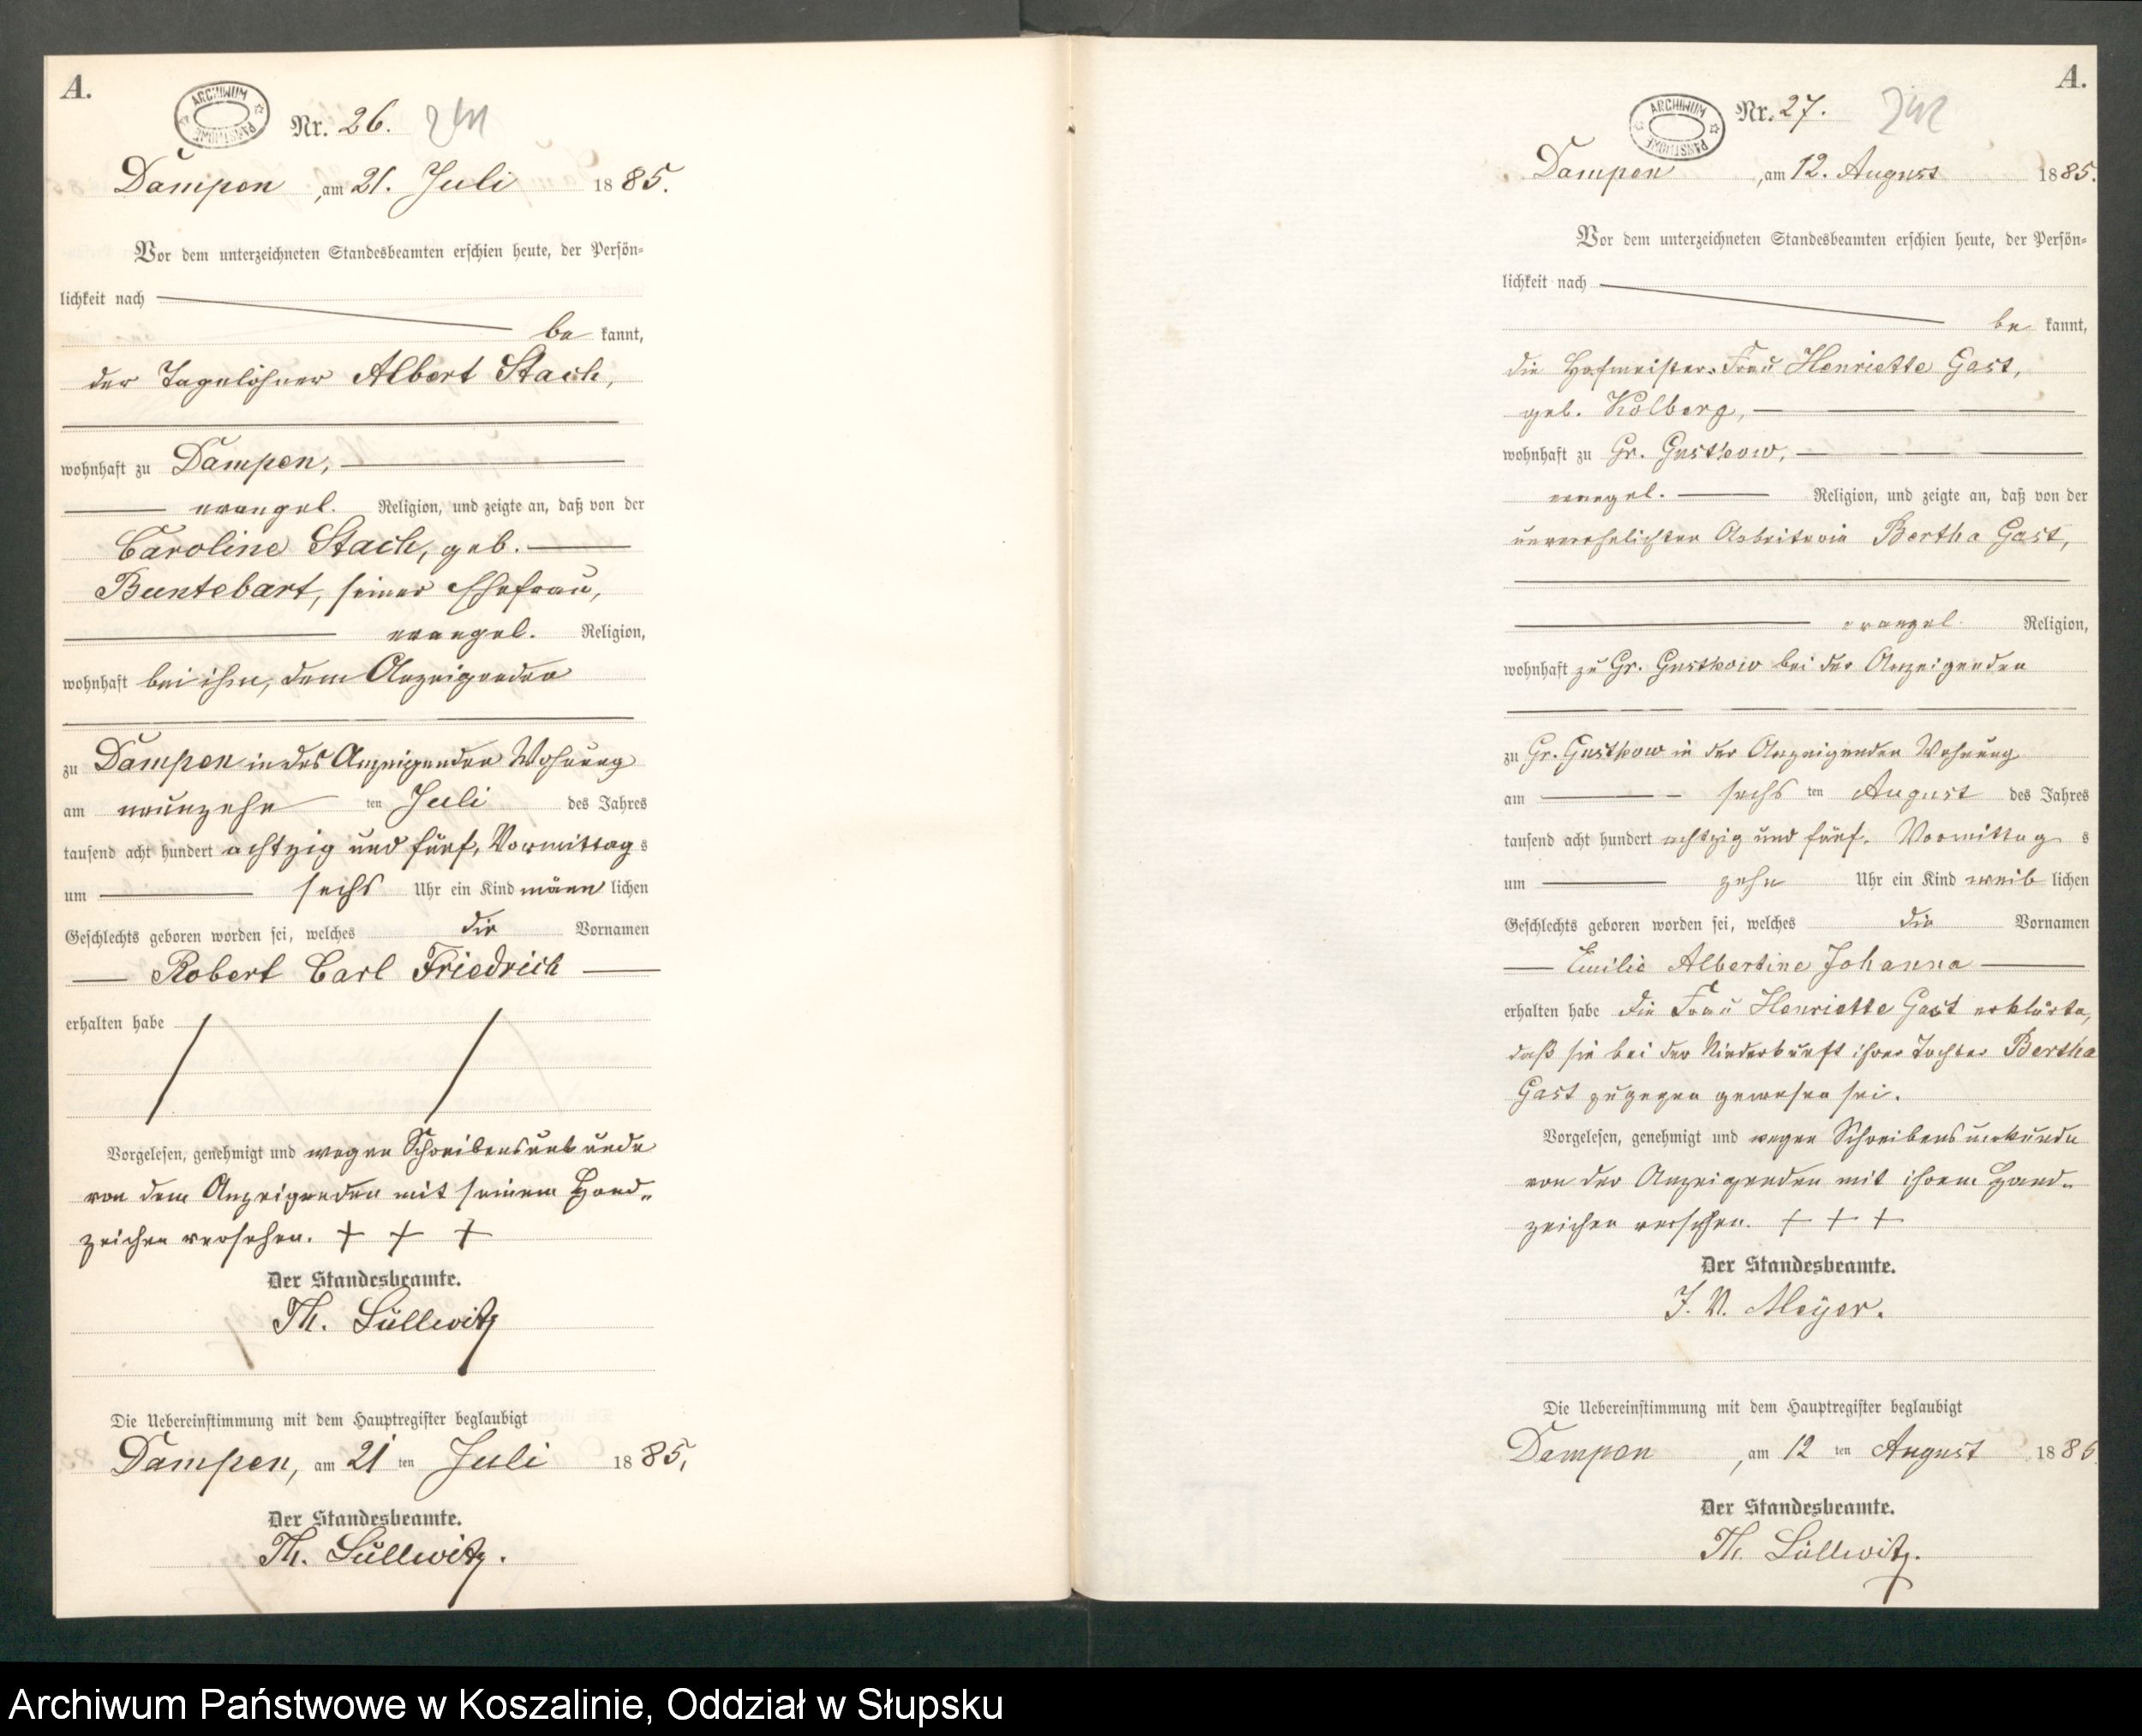 A.
ARCHIWUM PAŃSTWOWE
Nr. 26.
Dampen, am 21. Juli 1885.
Vor dem unterzeichneten Standesbeamten erschien heute, der Persön-
lichkeit nach
be kannt,
der Tagelöhner Albert Stach,
wohnhaft zu Dampen,
evangel. Religion, und zeigte an, daß von der
Caroline Stach, geb.
Buntebart, seiner Ehefrau,
evangel. Religion,
wohnhaft bei ihm, dem Anzeigenden
zu Dampen in des Anzeigenden Wohnung
am neunzehn ten Juli des Jahres
tausend acht hundert achtzig und fünf, Vormittag s
um sechs Uhr ein Kind männ lichen
Geschlechts geboren worden sei, welches die Vornamen
Robert Carl Friedrich
erhalten habe
Vorgelesen, genehmigt und wegen Schreibensunkunde
von dem Anzeigenden mit seinem Hand-
zeichen versehen. + + +
Der Standesbeamte.
Th. Lüllwitz
Die Uebereinstimmung mit dem Hauptregister beglaubigt
Dampen, am 21 ten Juli 1885,
Der Standesbeamte.
Th. Lüllwitz.
A.
ARCHIWUM PAŃSTWOWE
Nr. 27.
Dampen, am 12. August 1885.
Vor dem unterzeichneten Standesbeamten erschien heute, der Persön-
lichkeit nach
be kannt,
die Hofmeister-Frau Henriette Gast,
geb. Kolberg,
wohnhaft zu Gr. Gustkow,
evangel. Religion, und zeigte an, daß von der
unverehelichten Arbeiterin Bertha Gast,
evangel. Religion,
wohnhaft zu Gr. Gustkow bei der Anzeigenden
zu Gr. Gustkow in der Anzeigenden Wohnung
am sechs ten August des Jahres
tausend acht hundert achtzig und fünf, Vormittag s
um zehn Uhr ein Kind weib lichen
Geschlechts geboren worden sei, welches die Vornamen
Emilie Albertine Johanna
erhalten habe die Frau Henriette Gast erklärte,
daß sie bei der Niederkunft ihrer Tochter Bertha
Gast zugegen gewesen sei.
Vorgelesen, genehmigt und wegen Schreibensunkunde
von der Anzeigenden mit ihrem Hand-
zeichen versehen. + + +
Der Standesbeamte.
J. V. Meyer.
Die Uebereinstimmung mit dem Hauptregister beglaubigt
Dampen, am 12 ten August 1885
Der Standesbeamte.
Th. Lüllwitz.
Archiwum Państwowe w Koszalinie, Oddział w Słupsku